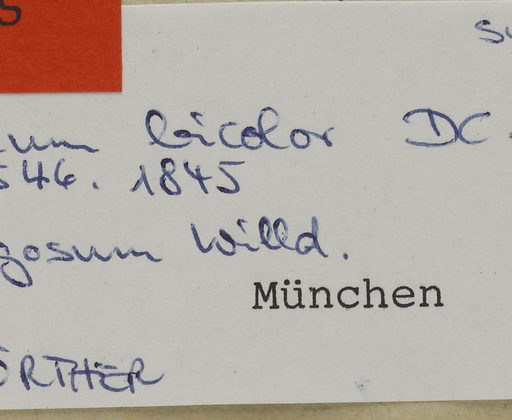 S
su
um bicolor DC.
546. 1845
gosum Willd.
München
ÖRTHER